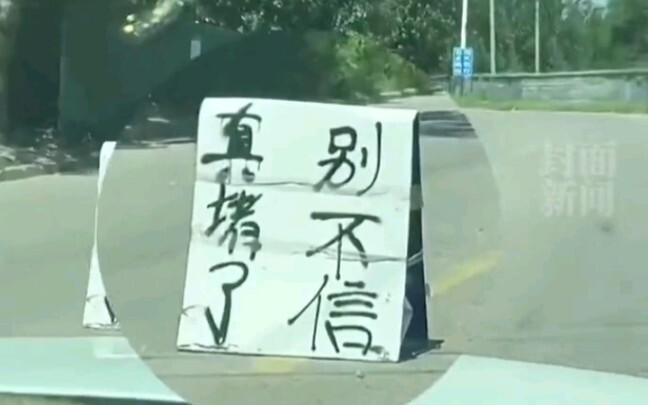 别不信
真堵了
封面
新闻